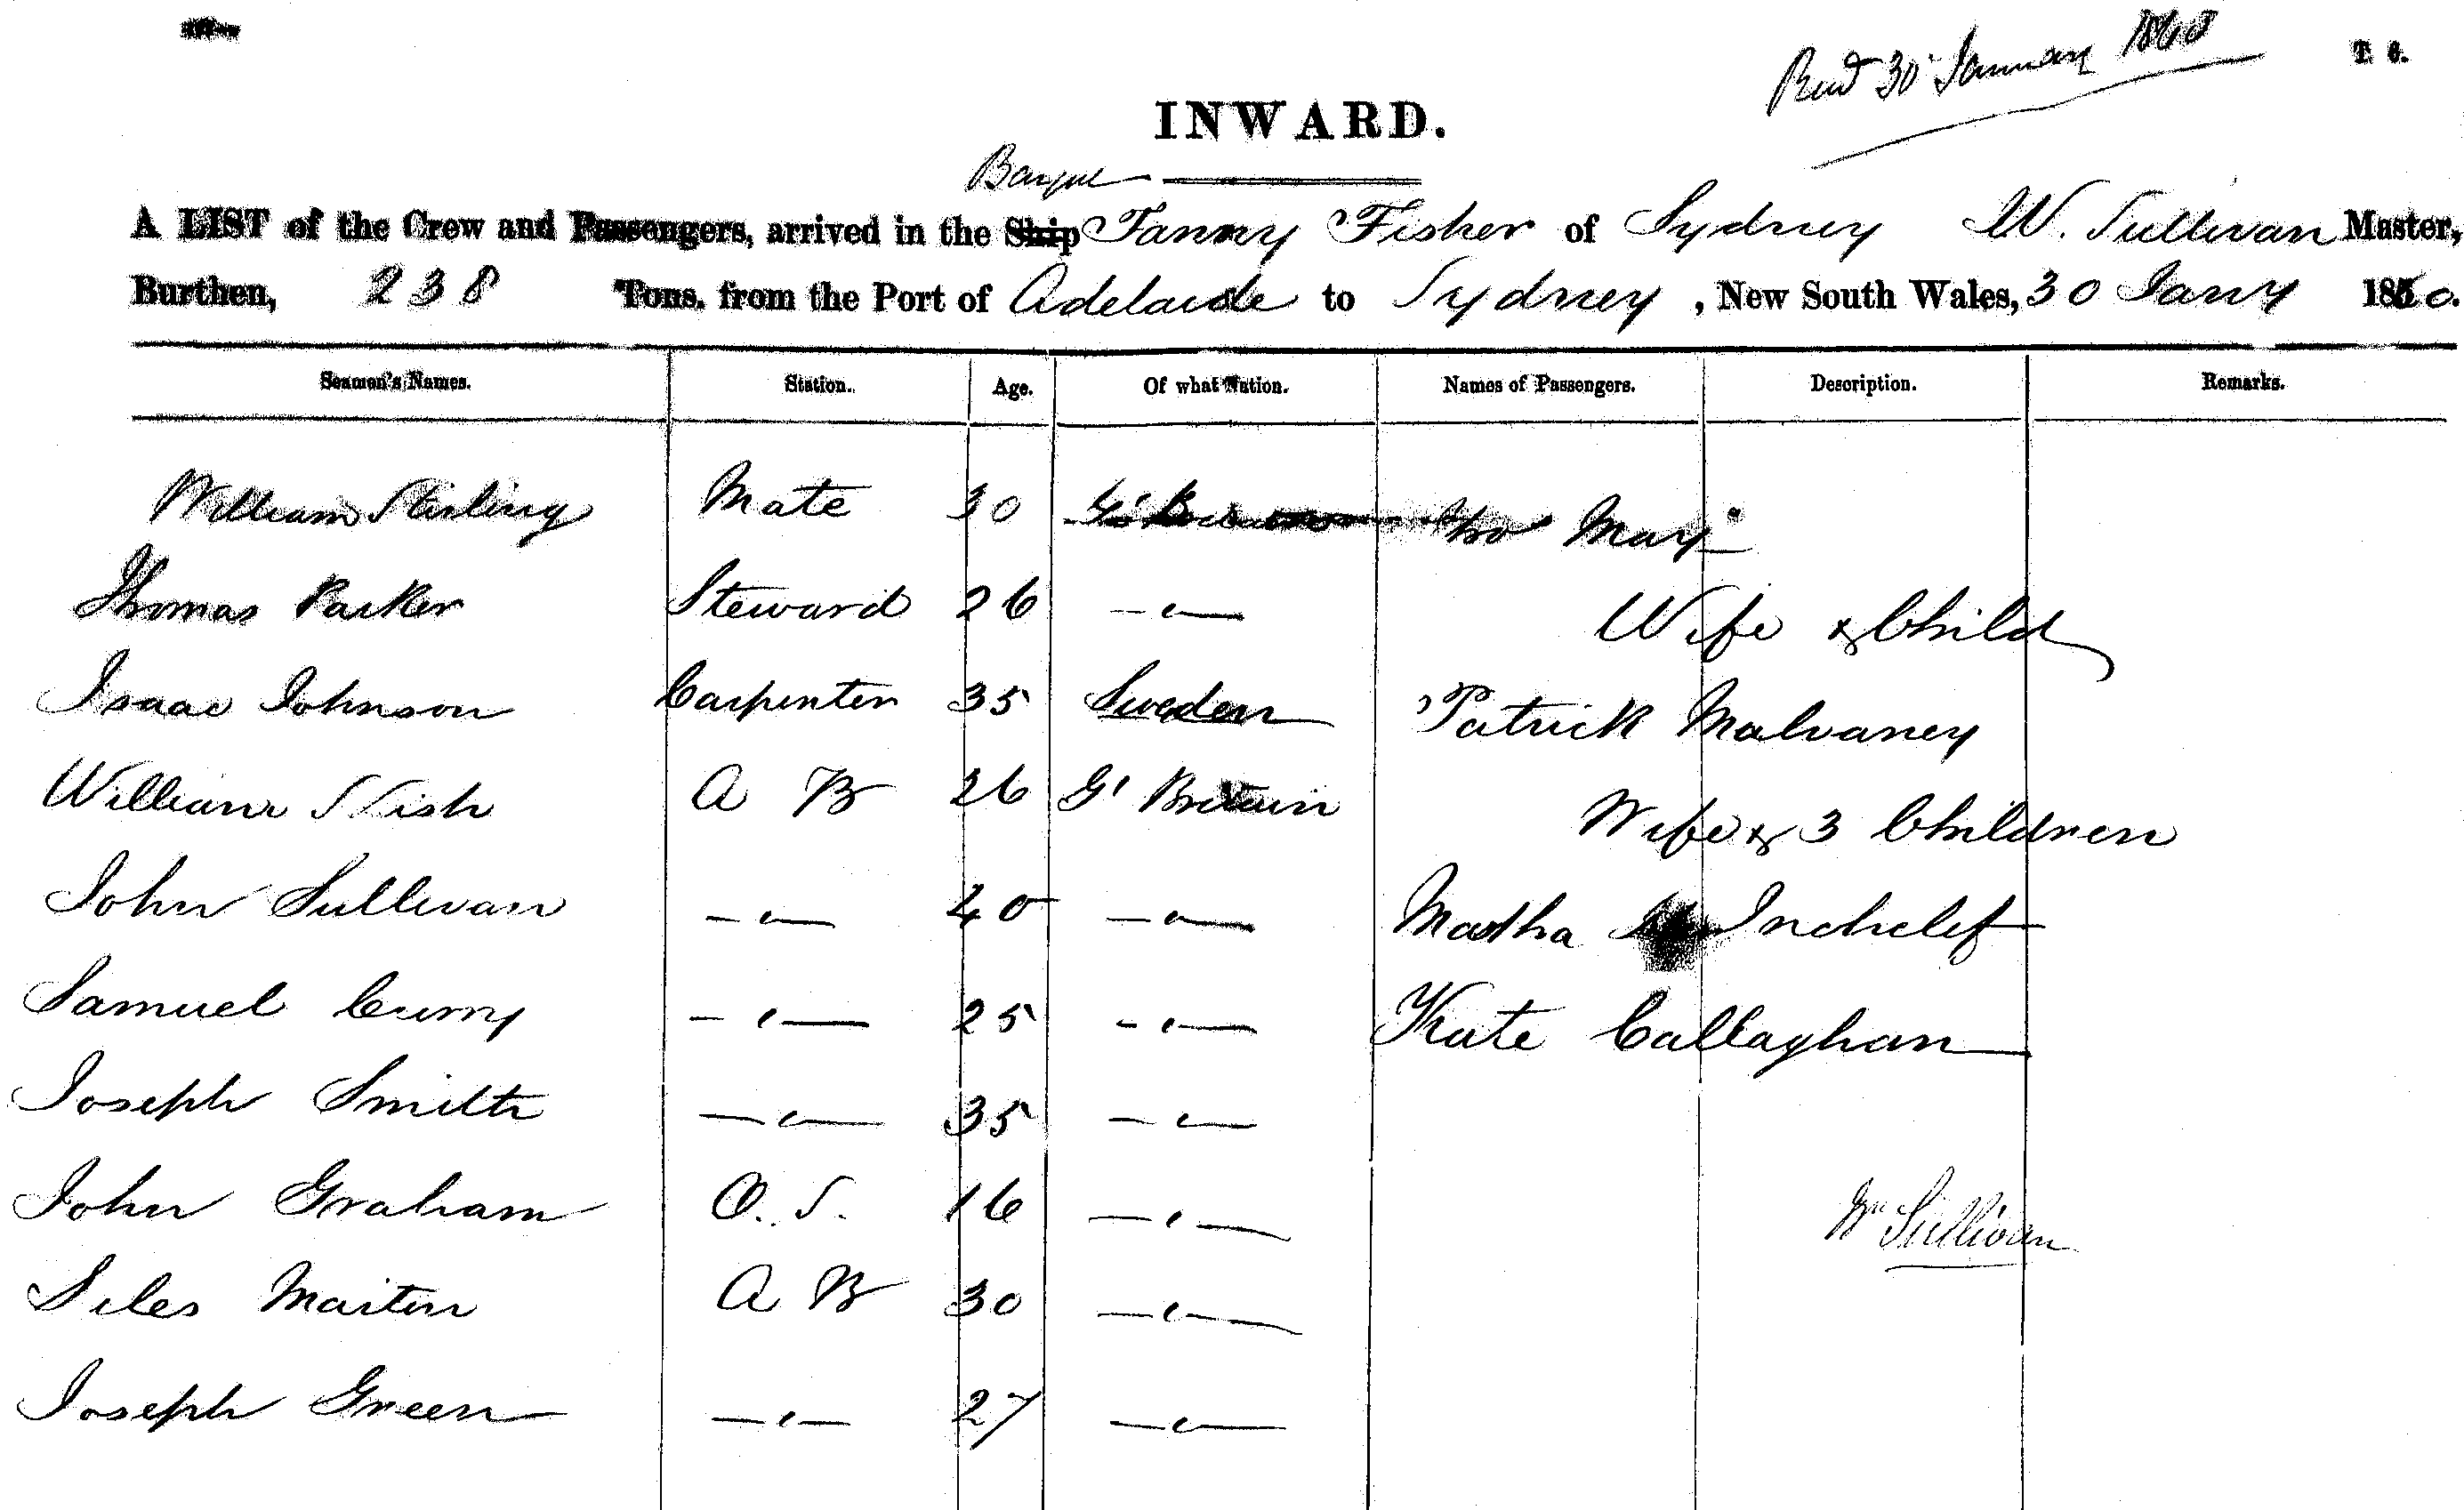 Recd 30 January 1860
T. 6.
INWARD.
Barque
A LIST of the Crew and Passengers, arrived in the Ship Fanny Fisher of Sydney W. Sullivan Master,
Burthen, 238 Tons, from the Port of Adelaide to Sydney, New South Wales, 30 Jany 1860.
Seamen's Names. Station. Age. Of what Nation. Names of Passengers. Description. Remarks.
William Stirling Mate 30 Gt Britain Mary
Thomas Parker Steward 26 —"— Wife & Child
Isaac Johnson Carpenter 35 Sweden Patrick Malvaney
William Nish A B 26 Gt Britain Wife & 3 Children
John Sullivan —"— 40 —"— Martha
Samuel Curry —"— 25 —"— Kate Callaghan
Joseph Smith —"— 35 —"—
John Graham O. S. 16 —"—
Wm Sullivan
Siles Martin A B 30 —"—
Joseph Green —"— 27 —"—